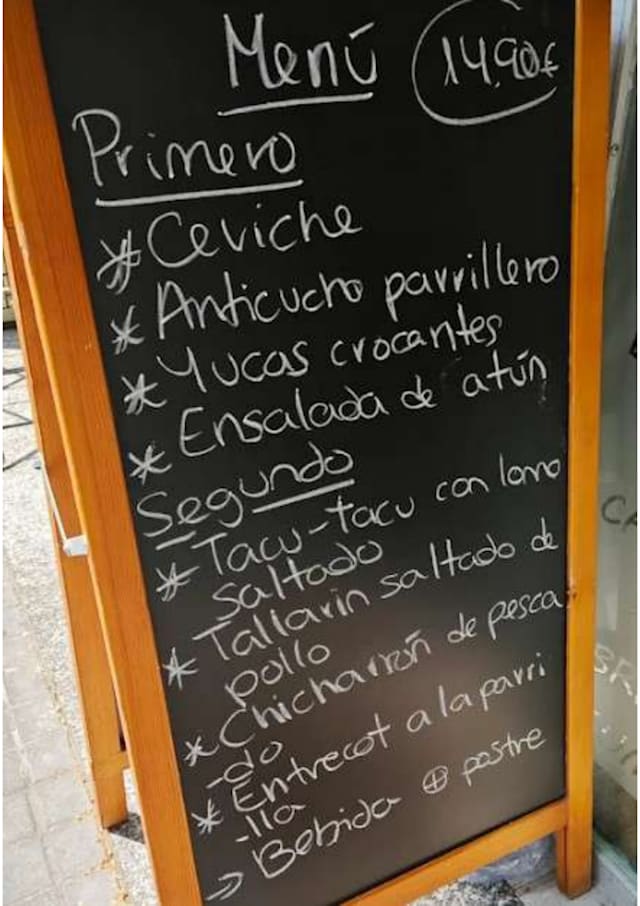 Menú 14,90€
Primero
* Ceviche
* Anticucho parrillero
* Yucas crocantes
* Ensalada de atún
Segundo
* Tacu-tacu con lomo
saltado
* Tallarin saltado de
pollo
* Chicharrón de pesca
-do
* Entrecot a la parri
-lla
→ Bebida ⊕ postre